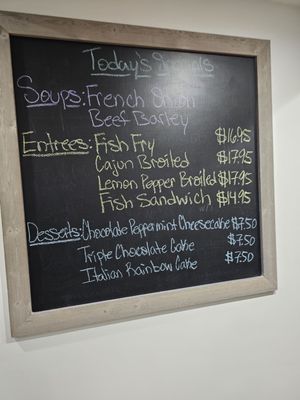 Today's Specials
Soups: French Onion
Beef Barley
Entrees: Fish Fry $16.95
Cajun Broiled $17.95
Lemon Pepper Broiled $17.95
Fish Sandwich $14.95
Desserts: Chocolate Peppermint Cheesecake $7.50
Triple Chocolate Cake $7.50
Italian Rainbow Cake $7.50